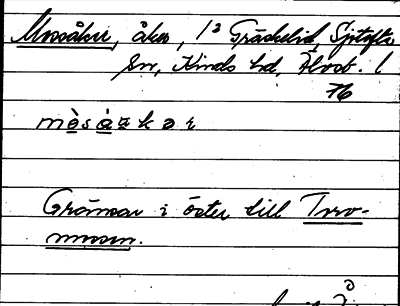 Mossåker, åker, 1² Gräskelid, Sjötofta
sn, Kinds hd, Älvsb. l
76
mòsàakər
Gränsar i öster till Tvro-
mosen.